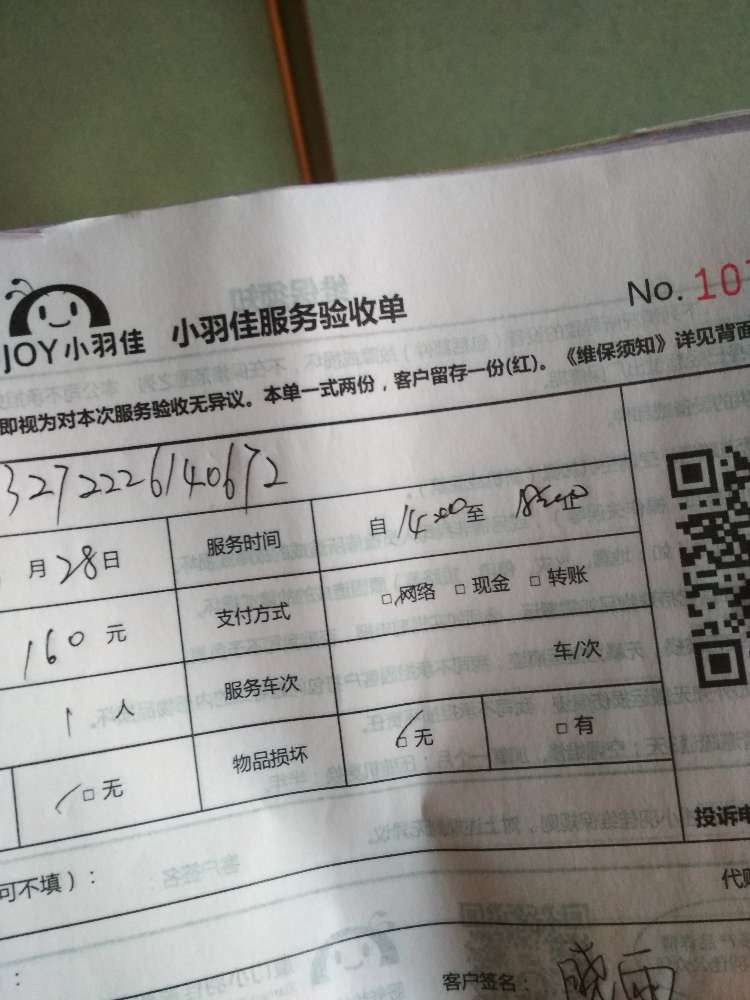 No. 10
JOY小羽佳 小羽佳服务验收单
即视为对本次服务验收无异议。本单一式两份，客户留存一份(红)。《维保须知》详见背面
3272226140672
月28日 服务时间 自14:00至18:00止
160元 支付方式 □网络 □现金 □转账
1人 服务车次 车/次
□无 物品损坏 □无 □有
投诉电
可不填）：
代
：
客户签名：晓雨